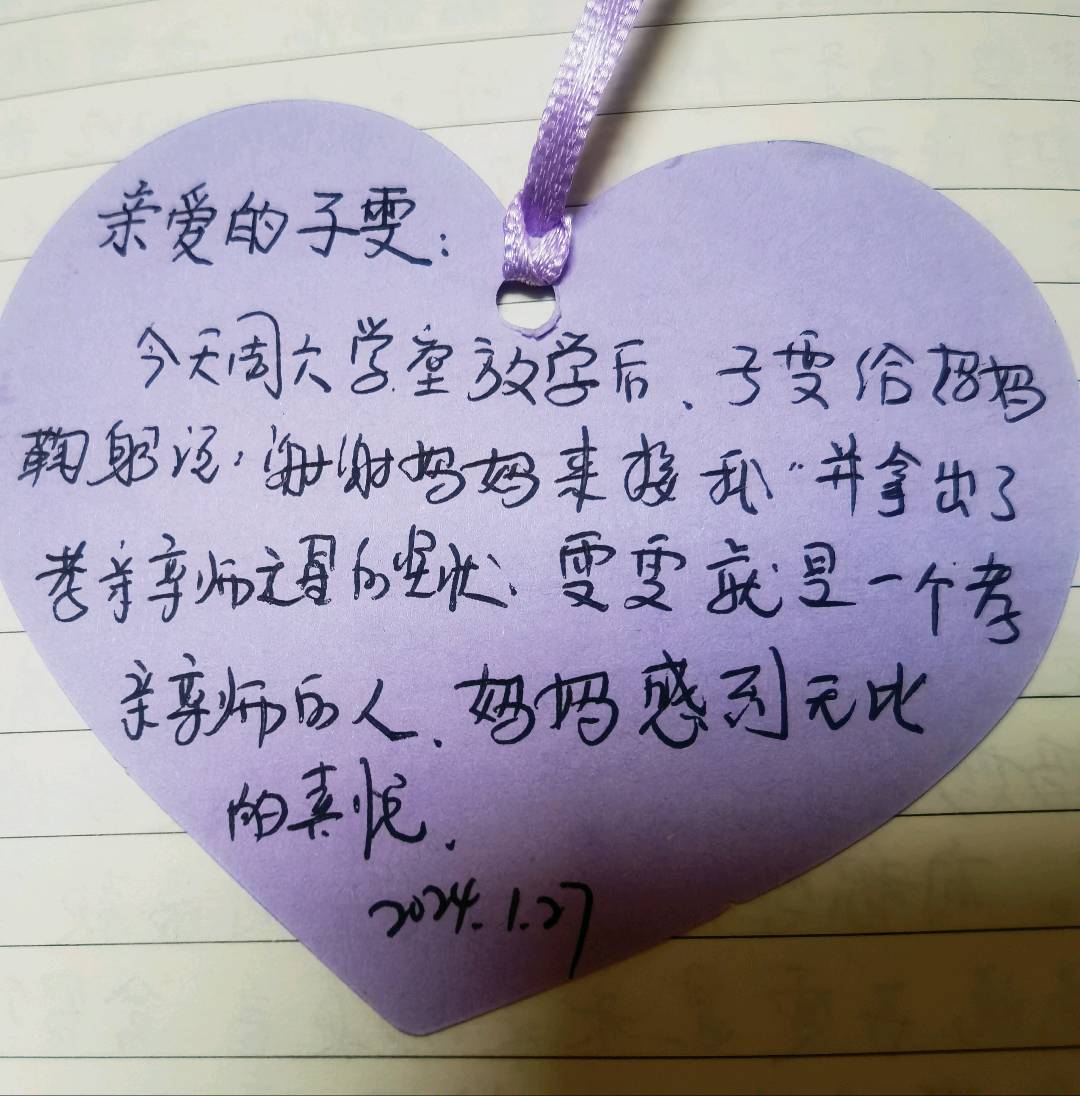 亲爱的子雯：
今天周六学堂放学后、子雯给妈妈
鞠躬说：谢谢妈妈来接我”并拿出了
孝亲尊师之星的奖状、雯雯就是一个孝
亲尊师的人、妈妈感到无比
的喜悦.
2024.1.27